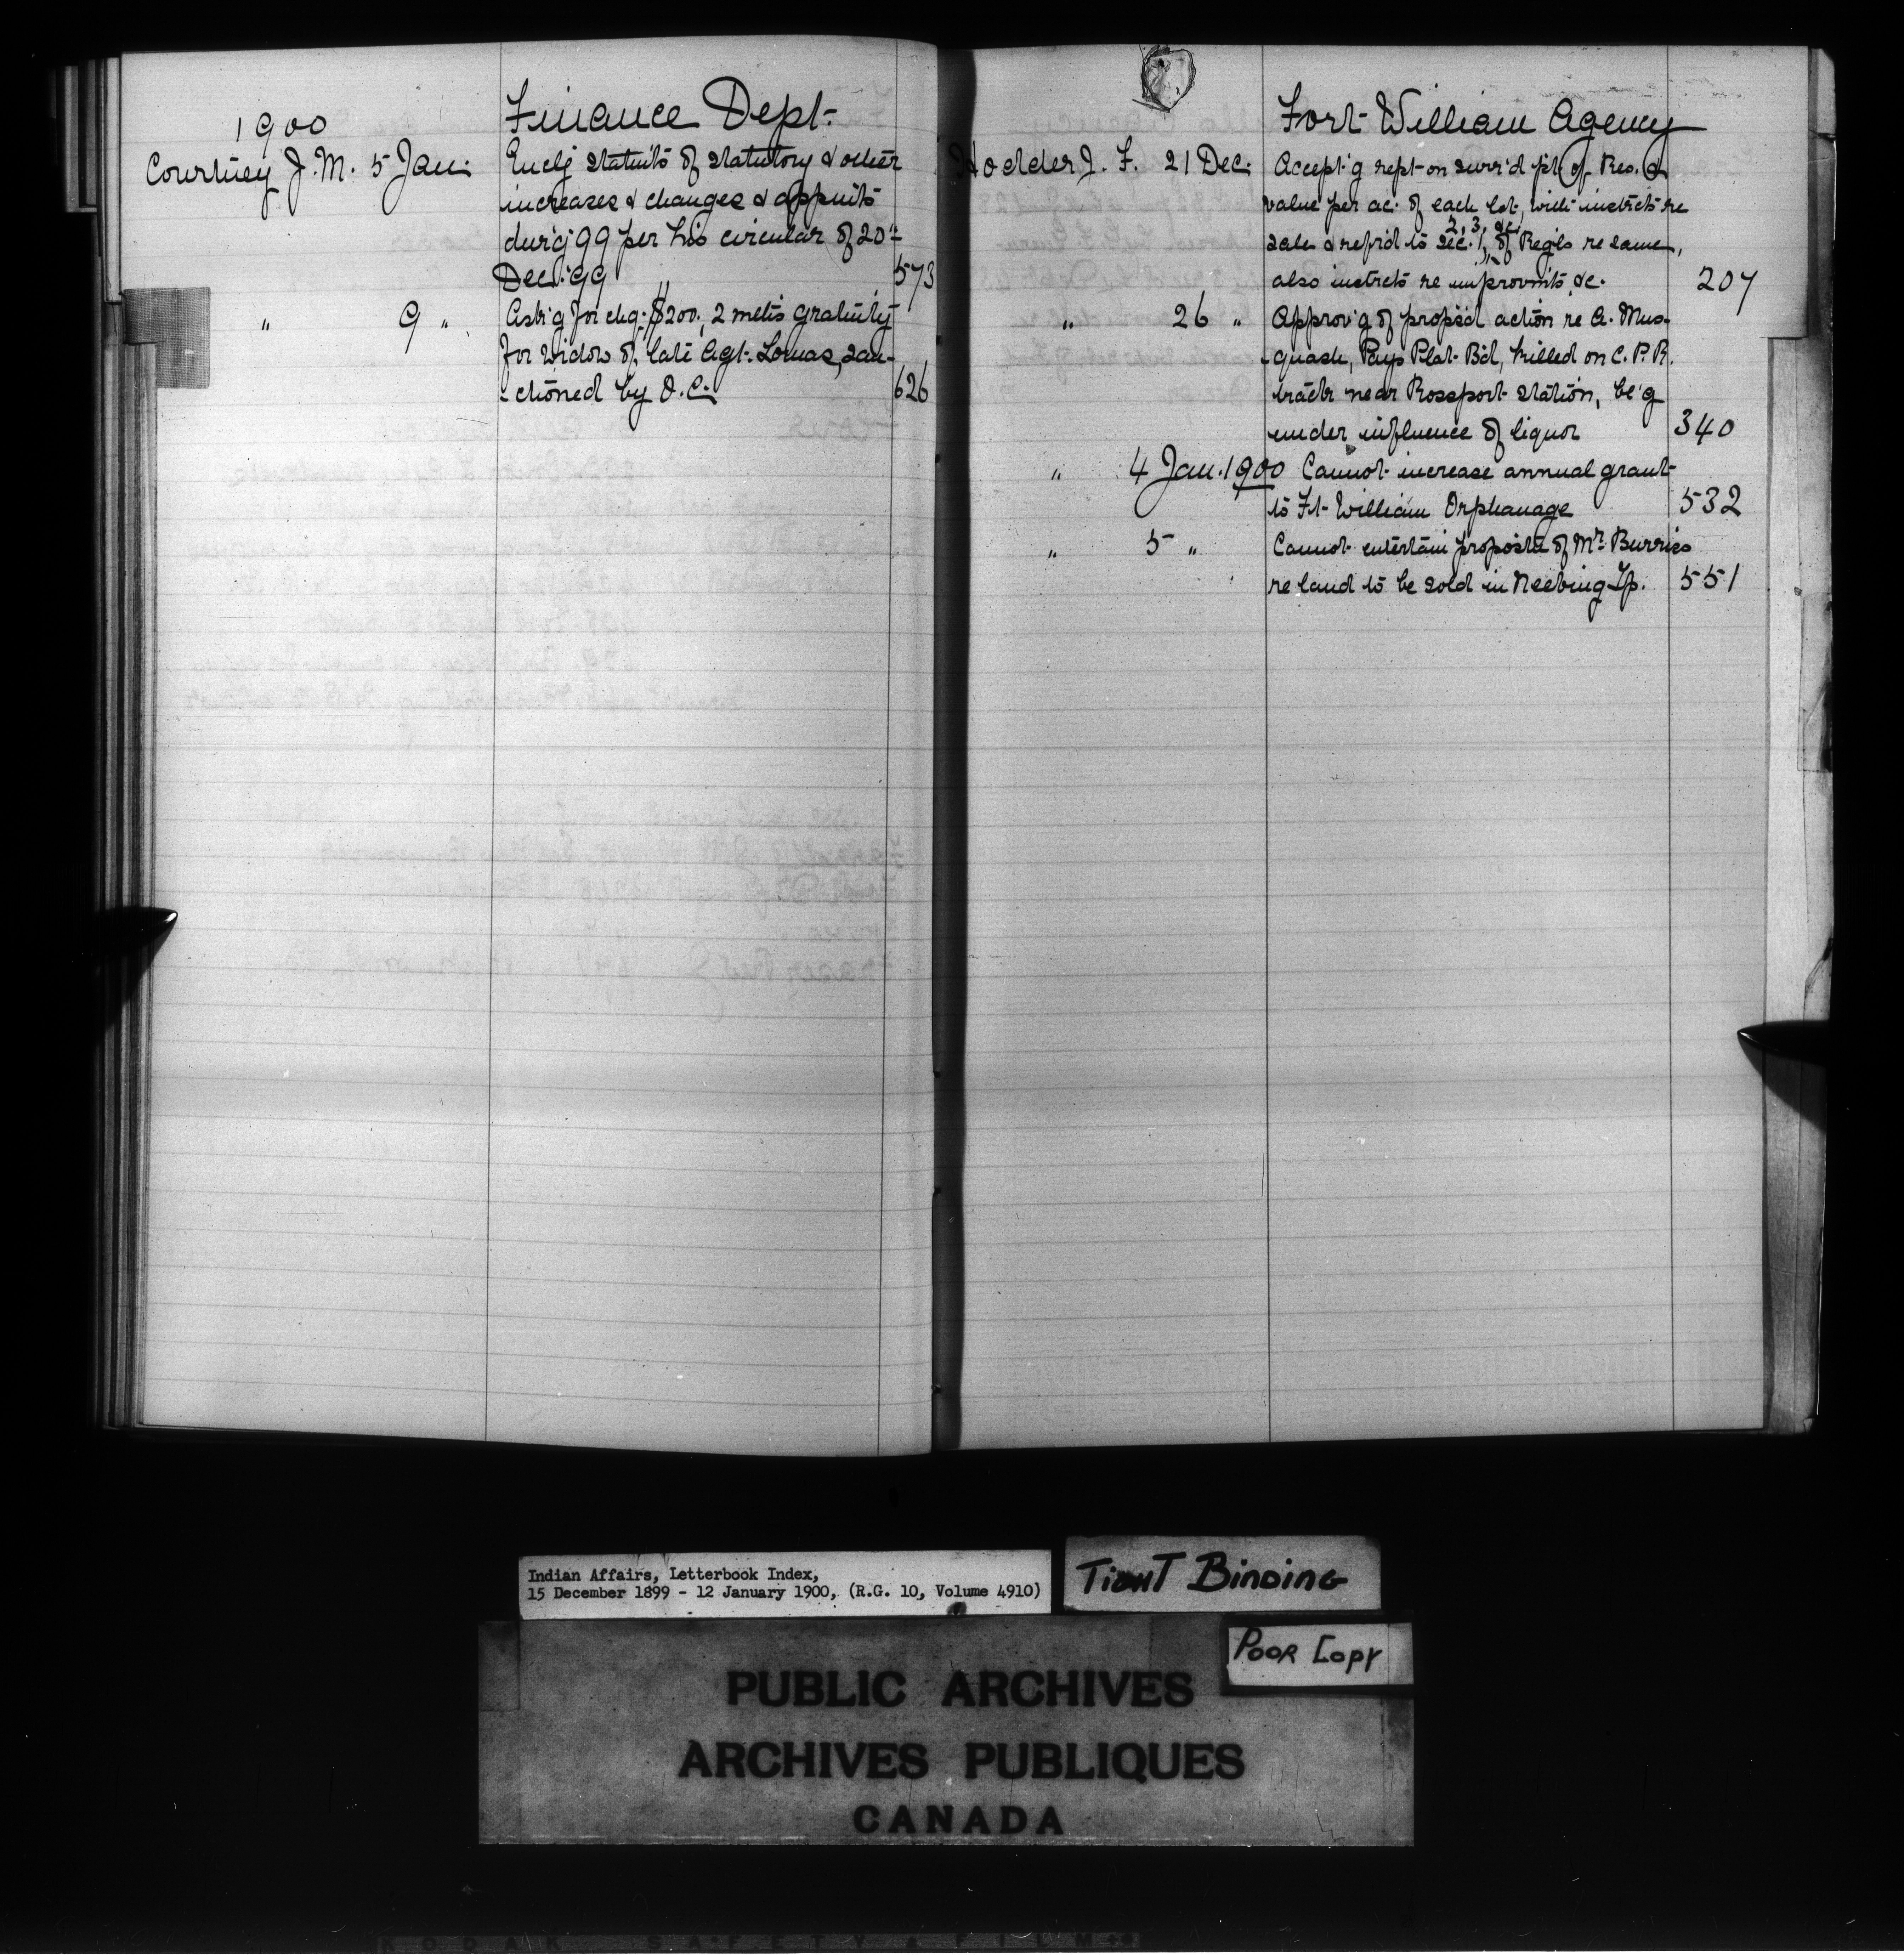 1900
Finance Dept.
Courtney J. M. 5 Jan. Encl'g statm'ts of statutory & other
increases & changes & appm'ts
dur'g 99 per his circular of 20th
Dec. 99 573
" 9 " Ask'g for chq. $200., 2 mths gratuity
for widow of late Agt. Lomas, san-
-ctioned by O.C. 626
Fort William Agency
Hodder J. F. 21 Dec. Accept'g rept on surr'd pt. of Res. &
value per ac. of each lot, with instrcts re
sale & ref'd to Sec. 1, 2, 3, &c. of Reg'ls re same,
also instrcts re improvmts &c. 207
" 26 " Approv'g of propos'd action re A. Mus-
-quash, Pays Plat Bd, killed on C.P.R.
track near Rossport station, be'g
under influence of liquor 340
" 4 Jan. 1900 Cannot increase annual grant
to Ft William Orphanage 532
" 5 " Cannot entertain proposta of Mr. Burriss
re land to be sold in Neebing Tp. 551
Indian Affairs, Letterbook Index,
15 December 1899 - 12 January 1900, (R.G. 10, Volume 4910)
TIGHT BINDING
POOR COPY
PUBLIC ARCHIVES
ARCHIVES PUBLIQUES
CANADA
KODAK SAFETY FILM